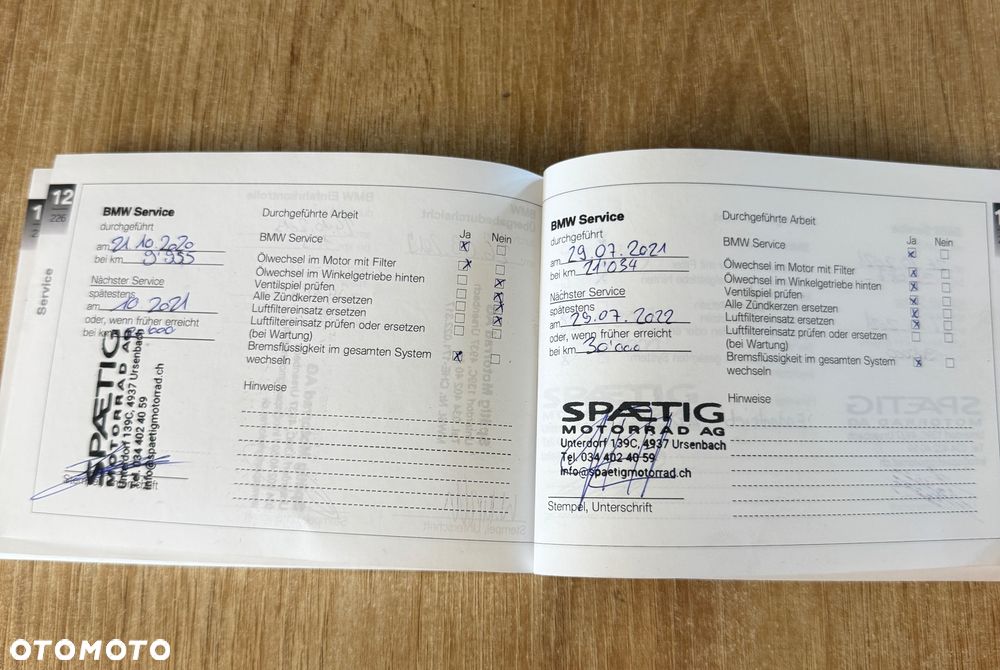 12
226
1
Service
BMW Service
durchgeführt
am 21.10.2020
bei km 9'935
Nächster Service
spätestens
am 10.2021
oder, wenn früher erreicht
bei km
SPÆTIG
MOTORRAD AG
Unterdorf 139C, 4937 Ursenbach
Tel. 034 402 40 59
info@spaetigmotorrad.ch
Durchgeführte Arbeit
Ja Nein
BMW Service
Ölwechsel im Motor mit Filter
Ölwechsel im Winkelgetriebe hinten
Ventilspiel prüfen
Alle Zündkerzen ersetzen
Luftfiltereinsatz ersetzen
Luftfiltereinsatz prüfen oder ersetzen
(bei Wartung)
Bremsflüssigkeit im gesamten System
wechseln
Hinweise
BMW Service
durchgeführt
am 29.07.2021
bei km 21'034
Nächster Service
spätestens
am 29.07.2022
oder, wenn früher erreicht
bei km 30'000
SPÆTIG
MOTORRAD AG
Unterdorf 139C, 4937 Ursenbach
Tel. 034 402 40 59
info@spaetigmotorrad.ch
Stempel, Unterschrift
Durchgeführte Arbeit
Ja Nein
BMW Service
Ölwechsel im Motor mit Filter
Ölwechsel im Winkelgetriebe hinten
Ventilspiel prüfen
Alle Zündkerzen ersetzen
Luftfiltereinsatz ersetzen
Luftfiltereinsatz prüfen oder ersetzen
(bei Wartung)
Bremsflüssigkeit im gesamten System
wechseln
Hinweise
OTOMOTO